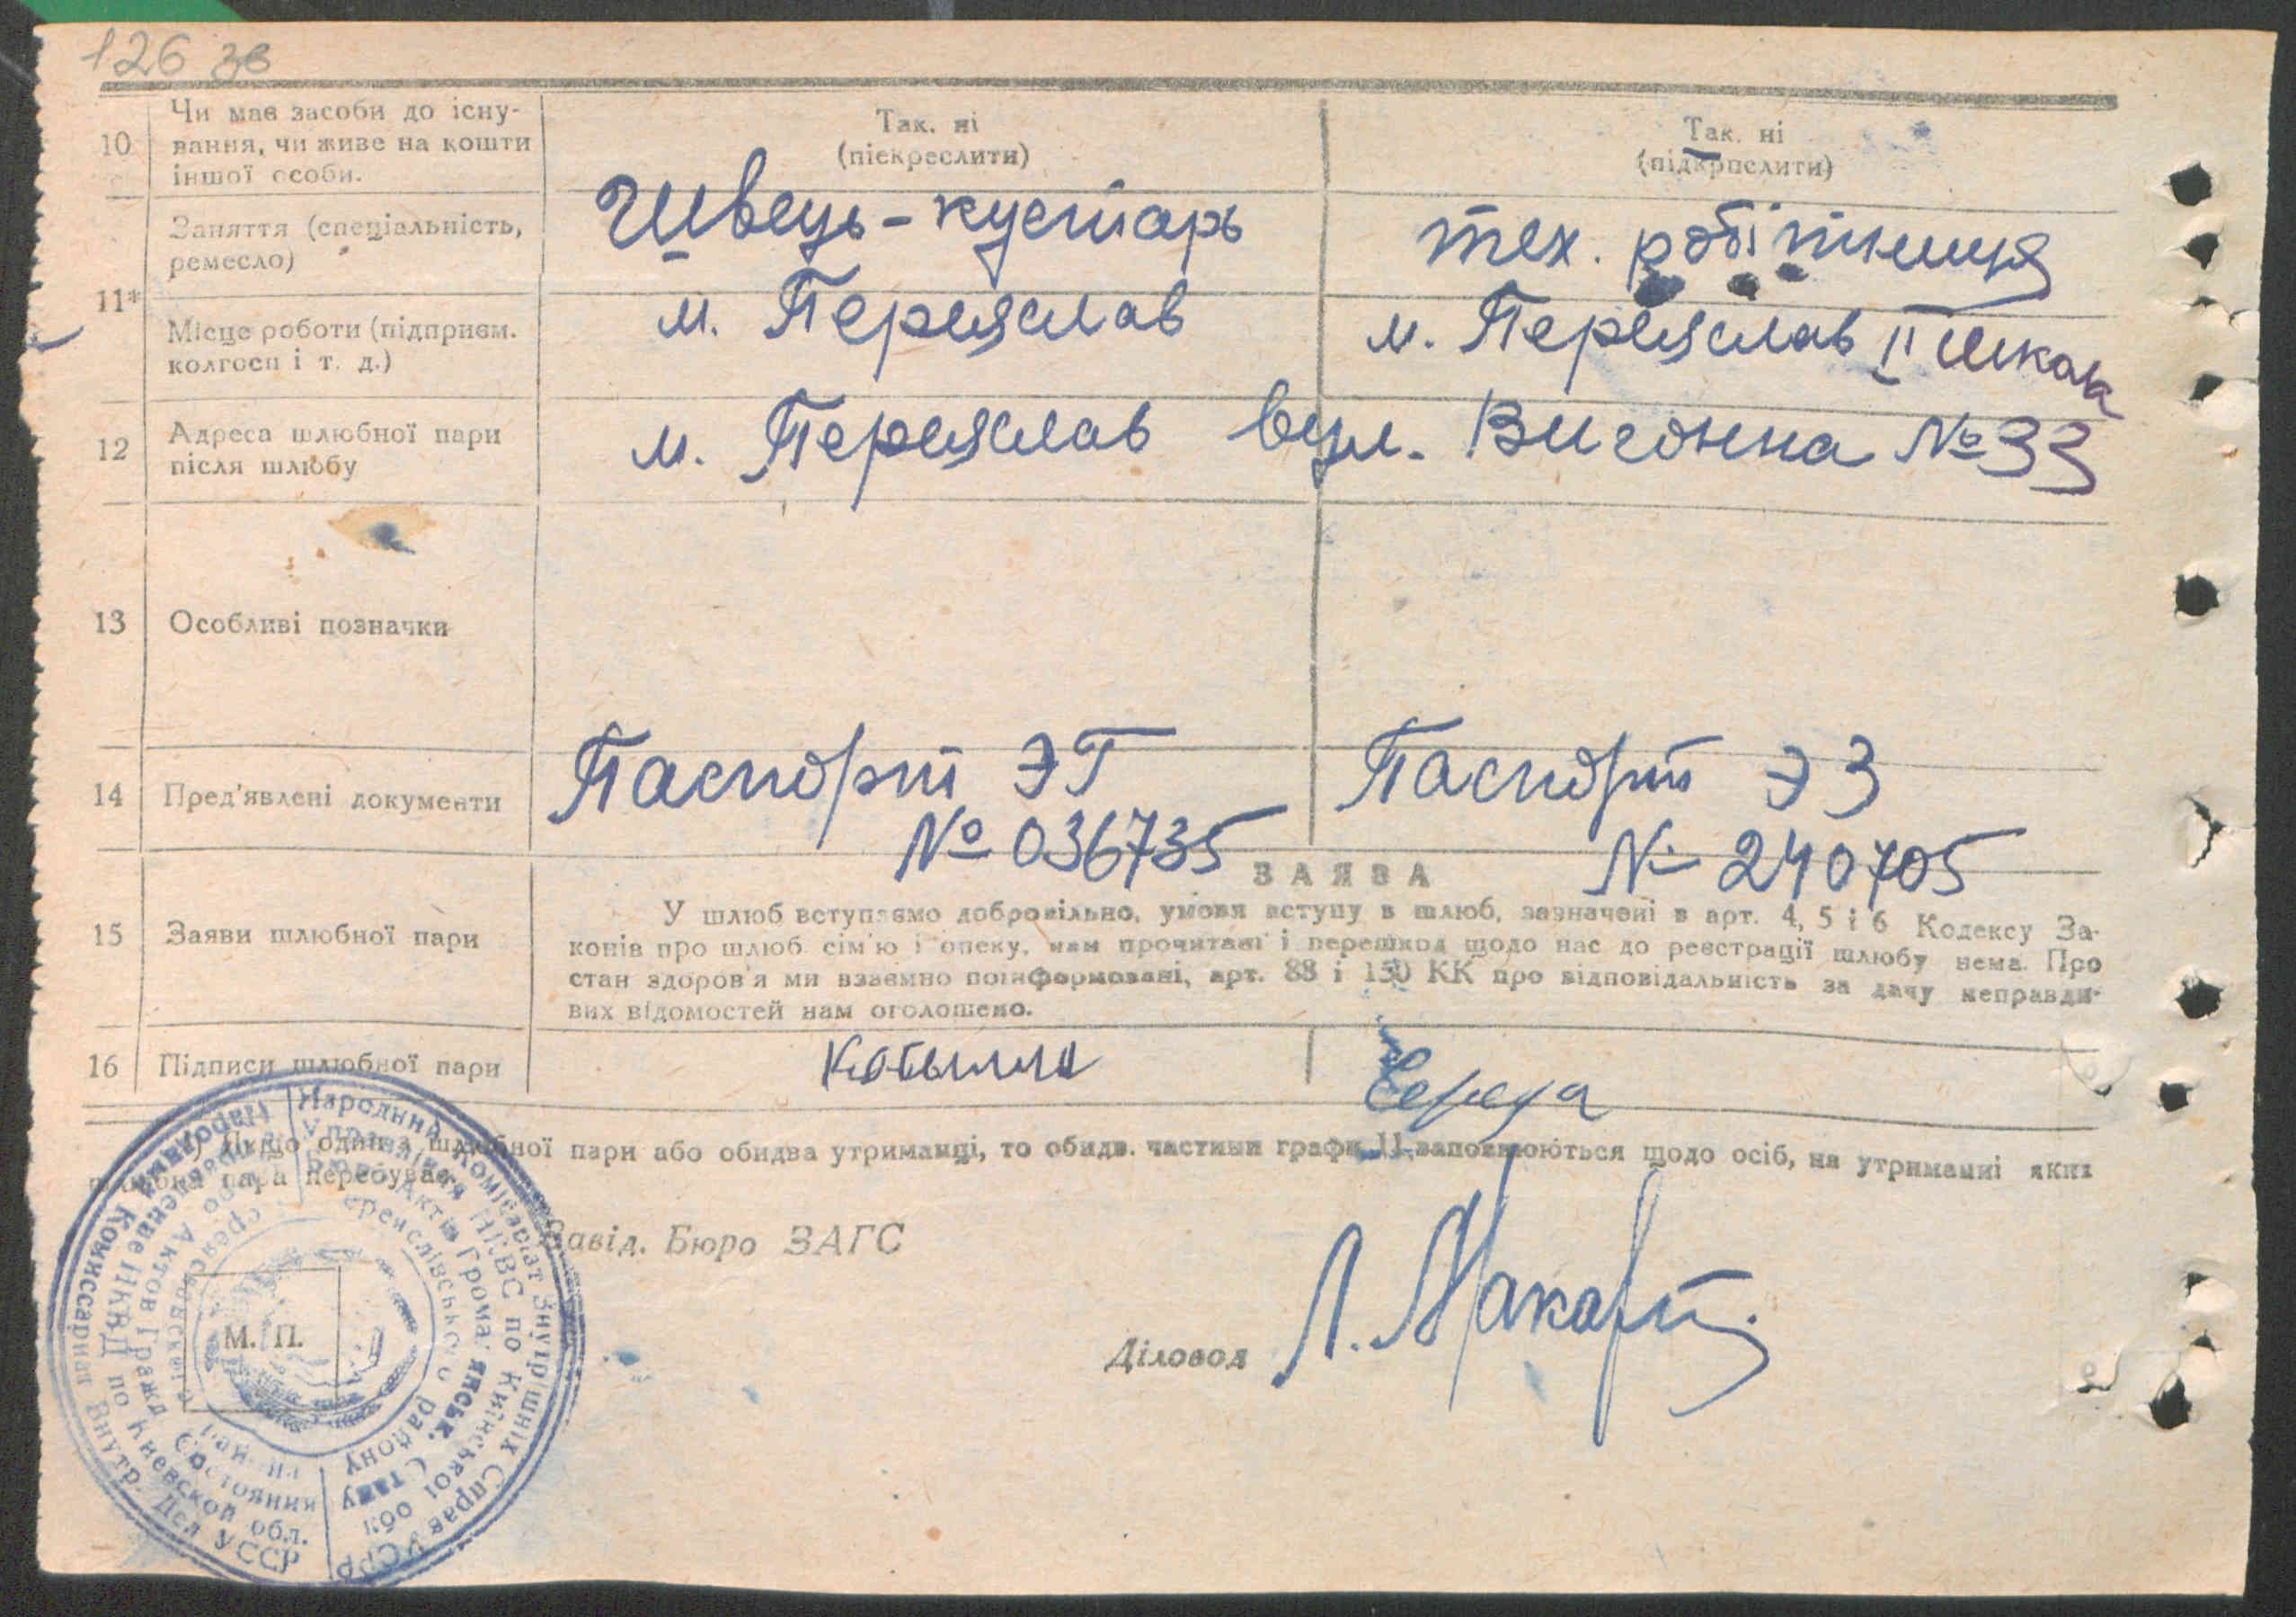 126 зв
10
Чи має засоби до існу-
вання, чи живе на кошти
іншої особи.
Так. ні
(піекреслити)
Так. ні
(підкрпслити)
11*
Заняття (спеціальність,
ремесло)
Швець-кустарь
тех. робітниця
Місце роботи (підприєм.
колгосп і т. д.)
м. Переяслав
м. Переяслав ІІ Школа
12
Адреса шлюбної пари
після шлюбу
м. Переяслав вул. Вигонна № 33
13
Особливі позначки
14
Пред'явлені документи
Паспорт ЭГ
№ 036735
Паспорт ЭЗ
№ 240705
15
Заяви шлюбної пари
ЗАЯВА
У шлюб вступаємо добровільно, умови вступу в шлюб, зазначені в арт. 4, 5 і 6 Кодексу За-
конів про шлюб сім'ю і опеку, нам прочитані і перешкод щодо нас до реєстрації шлюбу нема. Про
стан здоров'я ми взаємно поінформовані, арт. 88 і 150 КК про відповідальність за дачу неправди-
вих відомостей нам оголошено.
16
Підписи шлюбної пари
Середа
Якщо один з шлюбної пари або обидва утриманці, то обидв. частини графи 11 заповнюються щодо осіб, на утриманні яких
шлюбна пара перебуває.
Завід. Бюро ЗАГС
М. П.
Діловод
Л. Макар
Народний Комісаріат Внутрішніх Справ УСРР
Управління НКВС по Київській обл.
Бюро Актів Громадянськ. Стану
району
Комиссариат Внутр. Дел УССР
НКВД по Киевской обл.
Актов Гражд Состояния
района